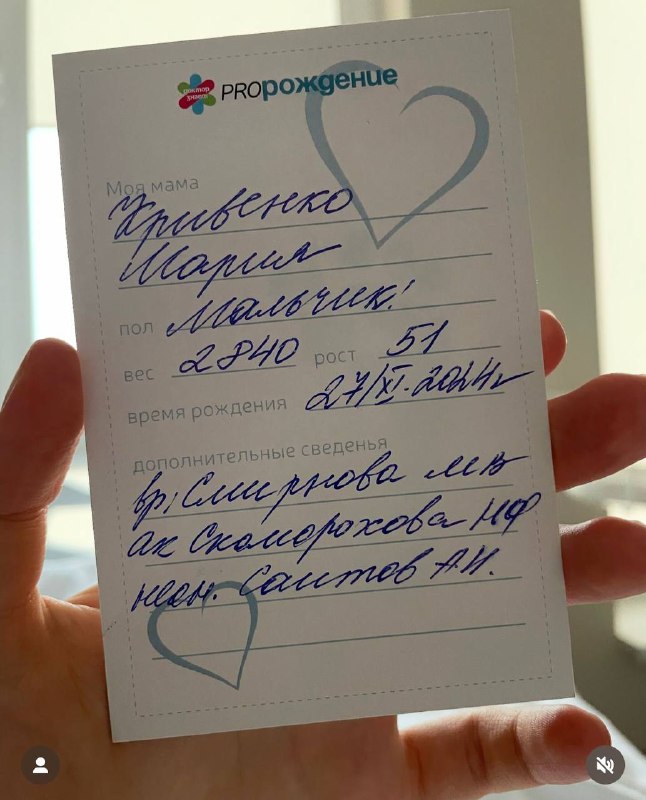 доктор знаев PROрождение
Моя мама
Кривенко
Мария
пол Мальчик!
вес 2840 рост 51
время рождения 27/XI. 2024г
дополнительные сведенья
вр: Смирнова МВ
ак Скоморохова НФ
неон. Саитов АН.